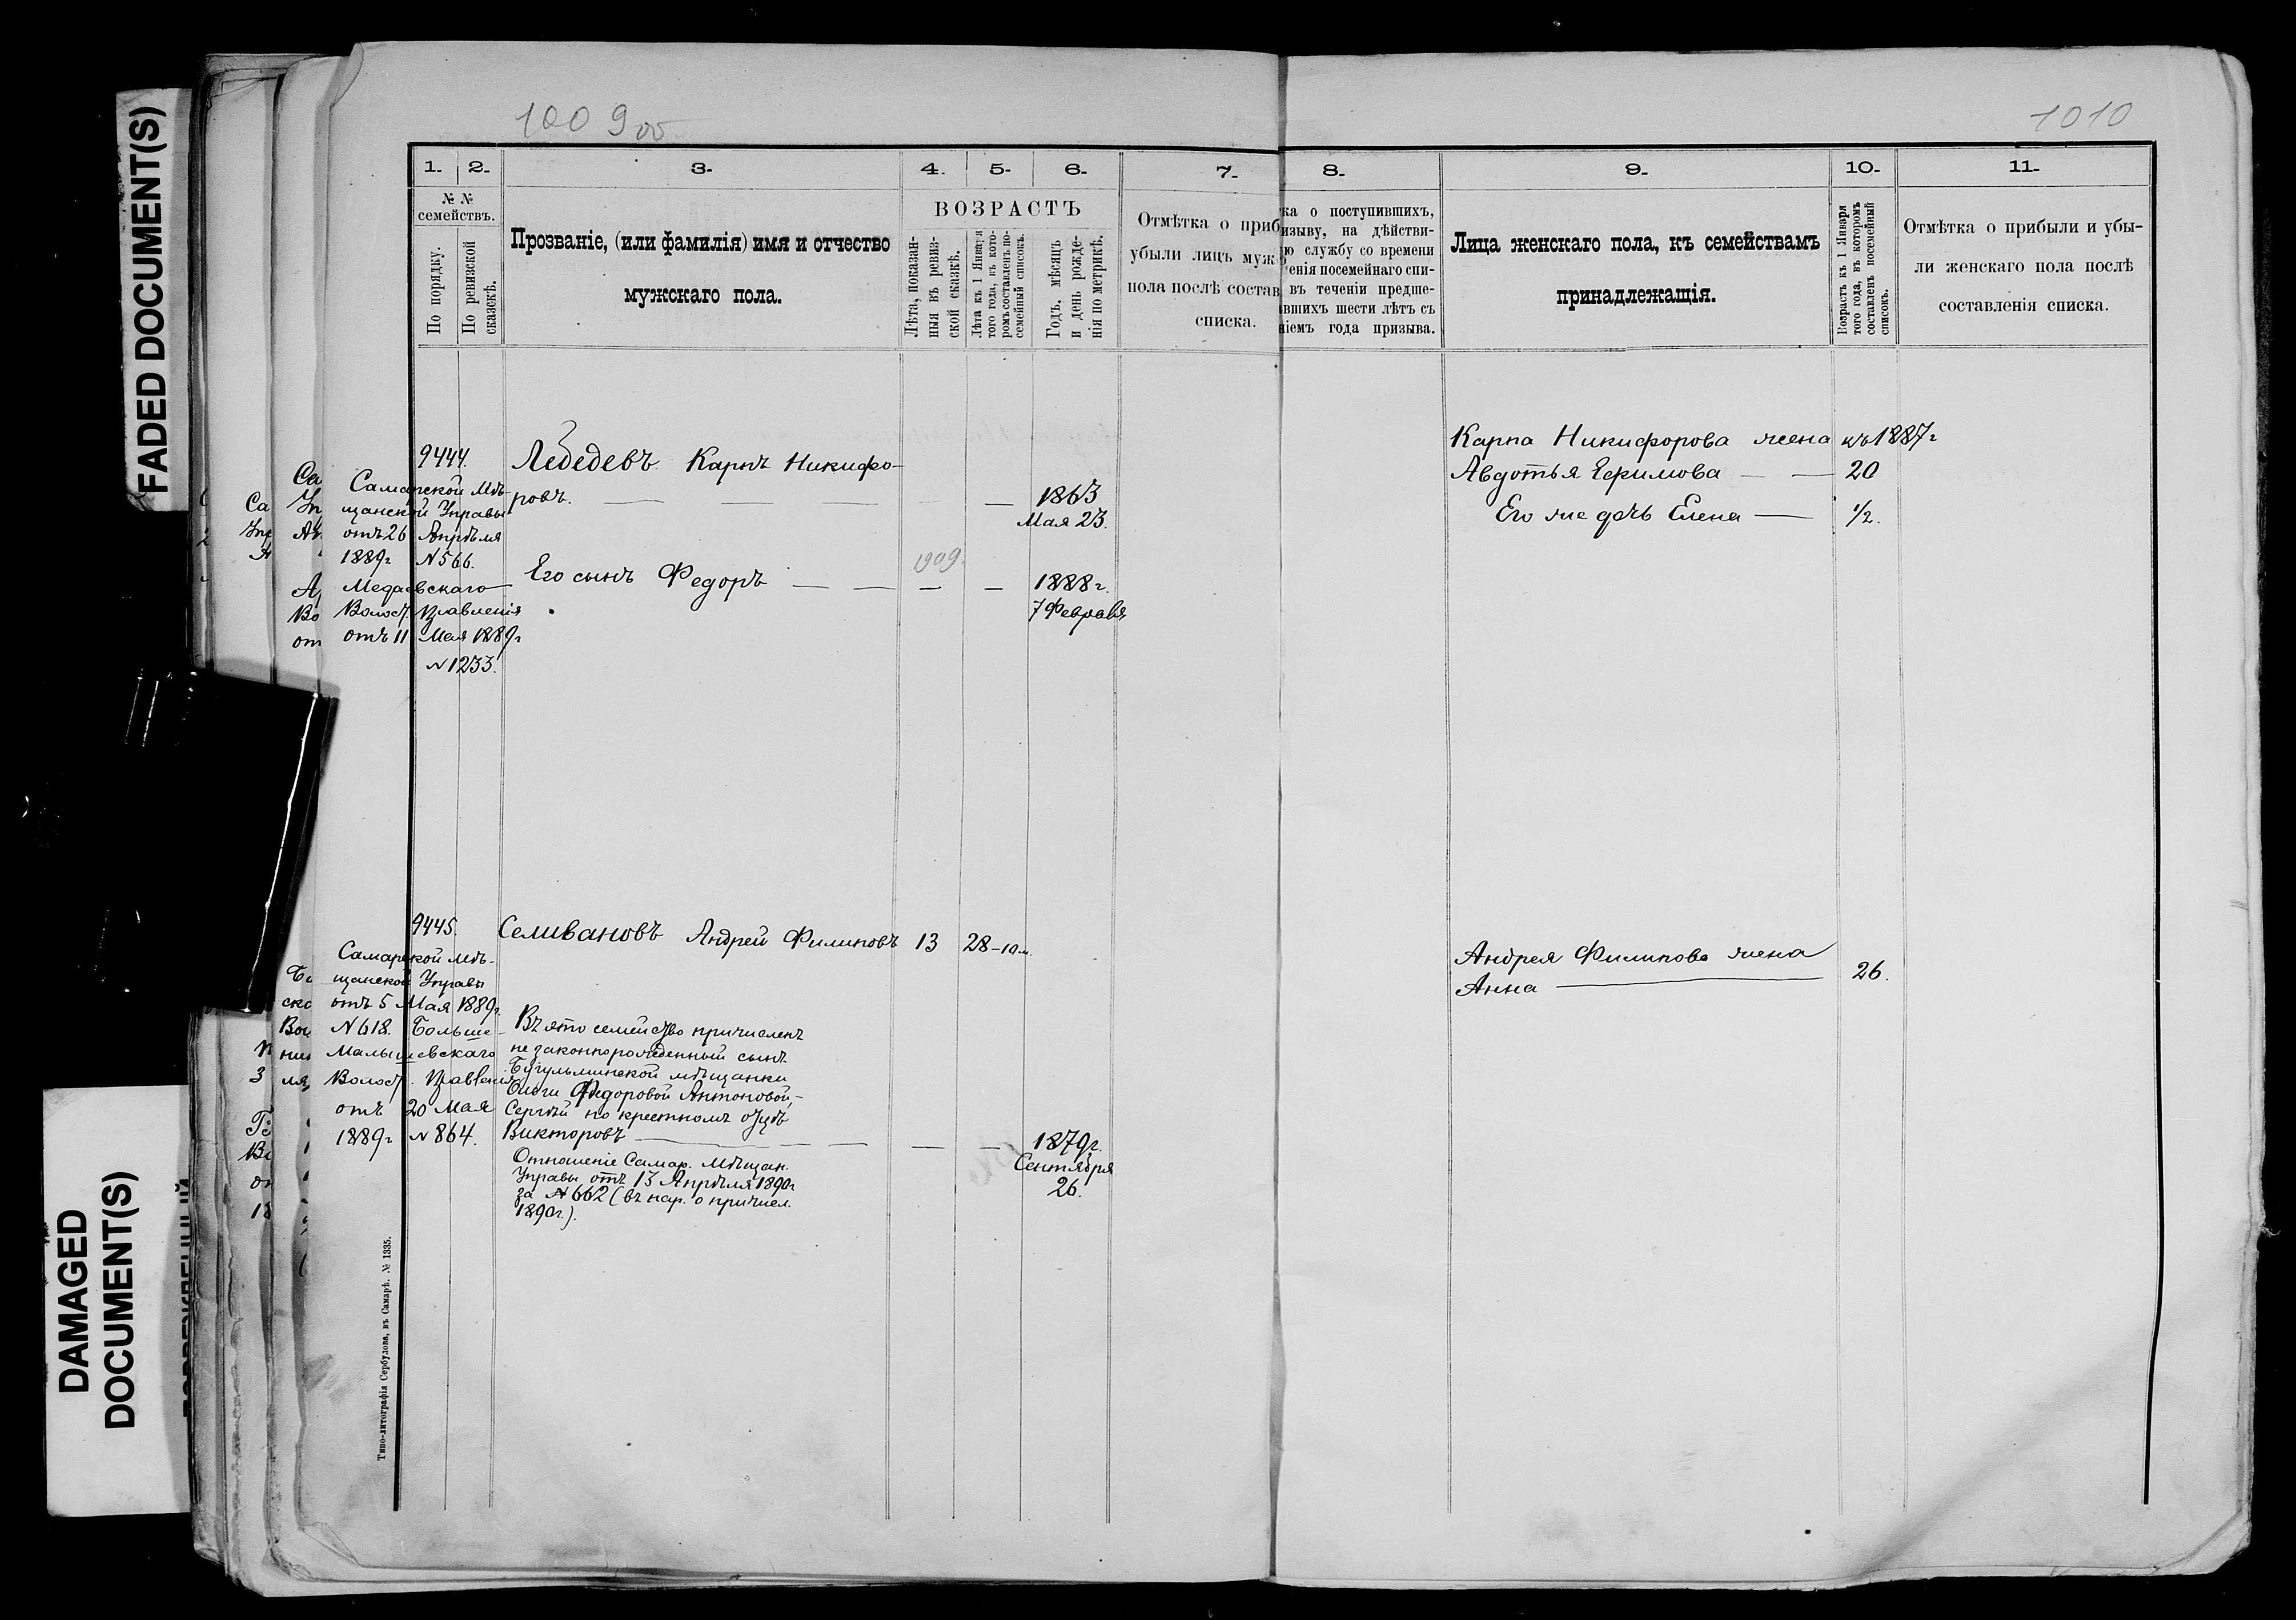 FADED DOCUMENT(S)
DAMAGED
DOCUMENT(S)
1009 об
1010
1.
2.
3.
4.
5.
6.
7.
8.
9.
10.
11.
№ №
семействъ.
По порядку.
По ревизской
сказскѣ.
Прозваніе, (или фамилія) имя и отчество
мужскаго пола.
ВОЗРАСТЪ
Лѣта, показан-
ныя въ ревиз-
ской сказкѣ.
Лѣта къ 1 Января
того года, въ кото-
ромъ составленъ по-
семейный списокъ.
Годъ, мѣсяцъ
и день рожде-
нія по метрикѣ.
Отмѣтка о приб
убыли лицъ муж
пола послѣ состав
списка.
ка о поступившихъ,
изыву, на дѣйстви-
ю службу со времени
енія посемейнаго спи-
въ теченіи предше-
вшихъ шести лѣтъ съ
ніемъ года призыва.
Лица женскаго пола, къ семействамъ
принадлежащія.
Возрастъ къ 1 Января
того года, въ которомъ
составленъ посемейный
списокъ.
Отмѣтка о прибыли и убы-
ли женскаго пола послѣ
составленія списка.
9444.
Самарской Мѣ-
щанской Управы
отъ 26 Апрѣля
1889г N566.
Медаевскаго
Волост. Правленія
отъ 11 Мая 1889г
N1233.
Лебедевъ Карпъ Никифо-
ровъ. — — — — 1863
Мая 23.
1909.
Его сынъ Федоръ — — — — 1888г.
7 Февраля
Карпа Никифорова жена въ 1887г
Авдотья Ефимова — — 20
Его же дочь Елена — 1/2.
9445.
Самарской мѣ-
щанской Управы
отъ 5 Мая 1889г.
N618. Больше-
Малышевскаго
Волост. Правленія
отъ 20 Мая
1889г N864.
Селивановъ Андрей Филиповъ 13 28-10м.
Въ это семейство причисленъ
незаконнорожденный сынъ
Бугульминской мѣщанки
Ольги Федоровой Антоновой,-
Сергѣй по крестномъ отцѣ
Викторовъ — — — — — 1879г.
Сентября
26.
Отношеніе Самар. Мѣщан.
Управы отъ 13 Апрѣля 1890г
за N662 (въ нар. о причисл.
1890г.).
Андрея Филипова жена
Анна — 26.
Типо-литографія Сербулова, въ Самарѣ. № 1335.